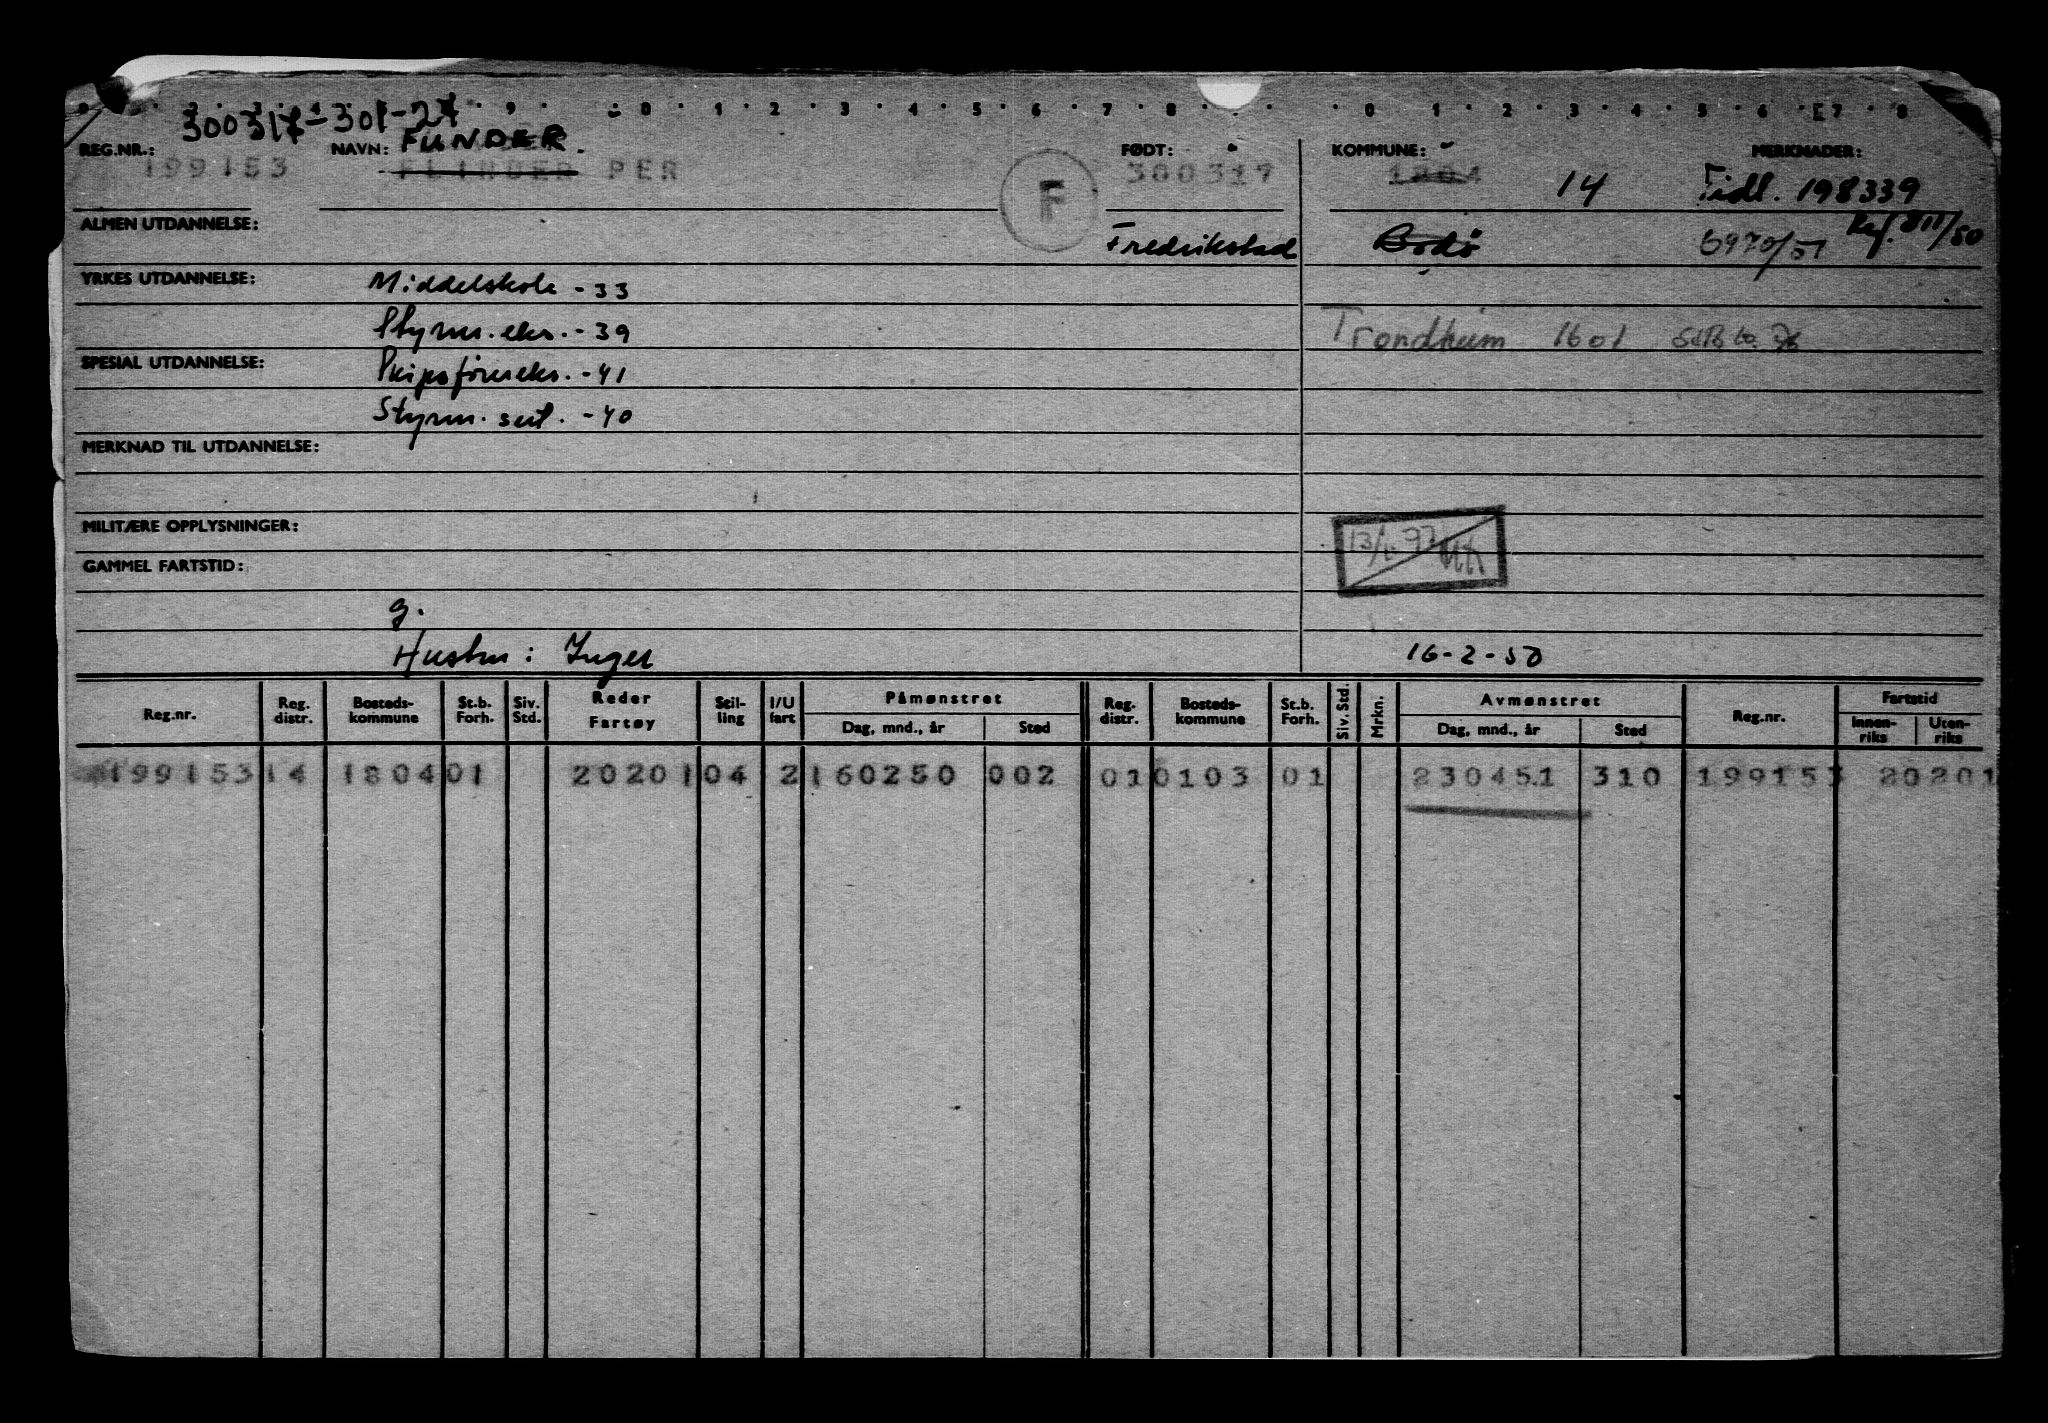 300317-301-27
REG.NR.: NAVN: FUNDER. FØDT: KOMMUNE: MERKNADER:
199153 FLINDER PER F 300317 1804 14 Tidl. 198339
ALMEN UTDANNELSE: Fredrikstad Bodø 6970/51
YRKES UTDANNELSE: Middelskole - 33
Styrm. eks. - 39 Trondheim 1601
SPESIAL UTDANNELSE: Skipsføreeks. - 41
Styrm. sert. - 40
MERKNAD TIL UTDANNELSE:
MILITÆRE OPPLYSNINGER:
GAMMEL FARTSTID:
g.
Hustru : Inger 16-2-50
Reg.nr. Reg. distr. Bosteds-kommune St.b. Forh. Siv. Std. Reder Fartøy Stil-ling I/U fart Påmønstret Dag, mnd., år Sted Reg. distr. Bosteds-kommune St.b. Forh. Siv. Std. Mrkn. Avmønstret Dag, mnd., år Sted Reg.nr. Fartstid Innen-riks Uten-riks
199153 14 1804 01 20201 04 2 160250 002 01 0103 01 230451 310 199153 20201